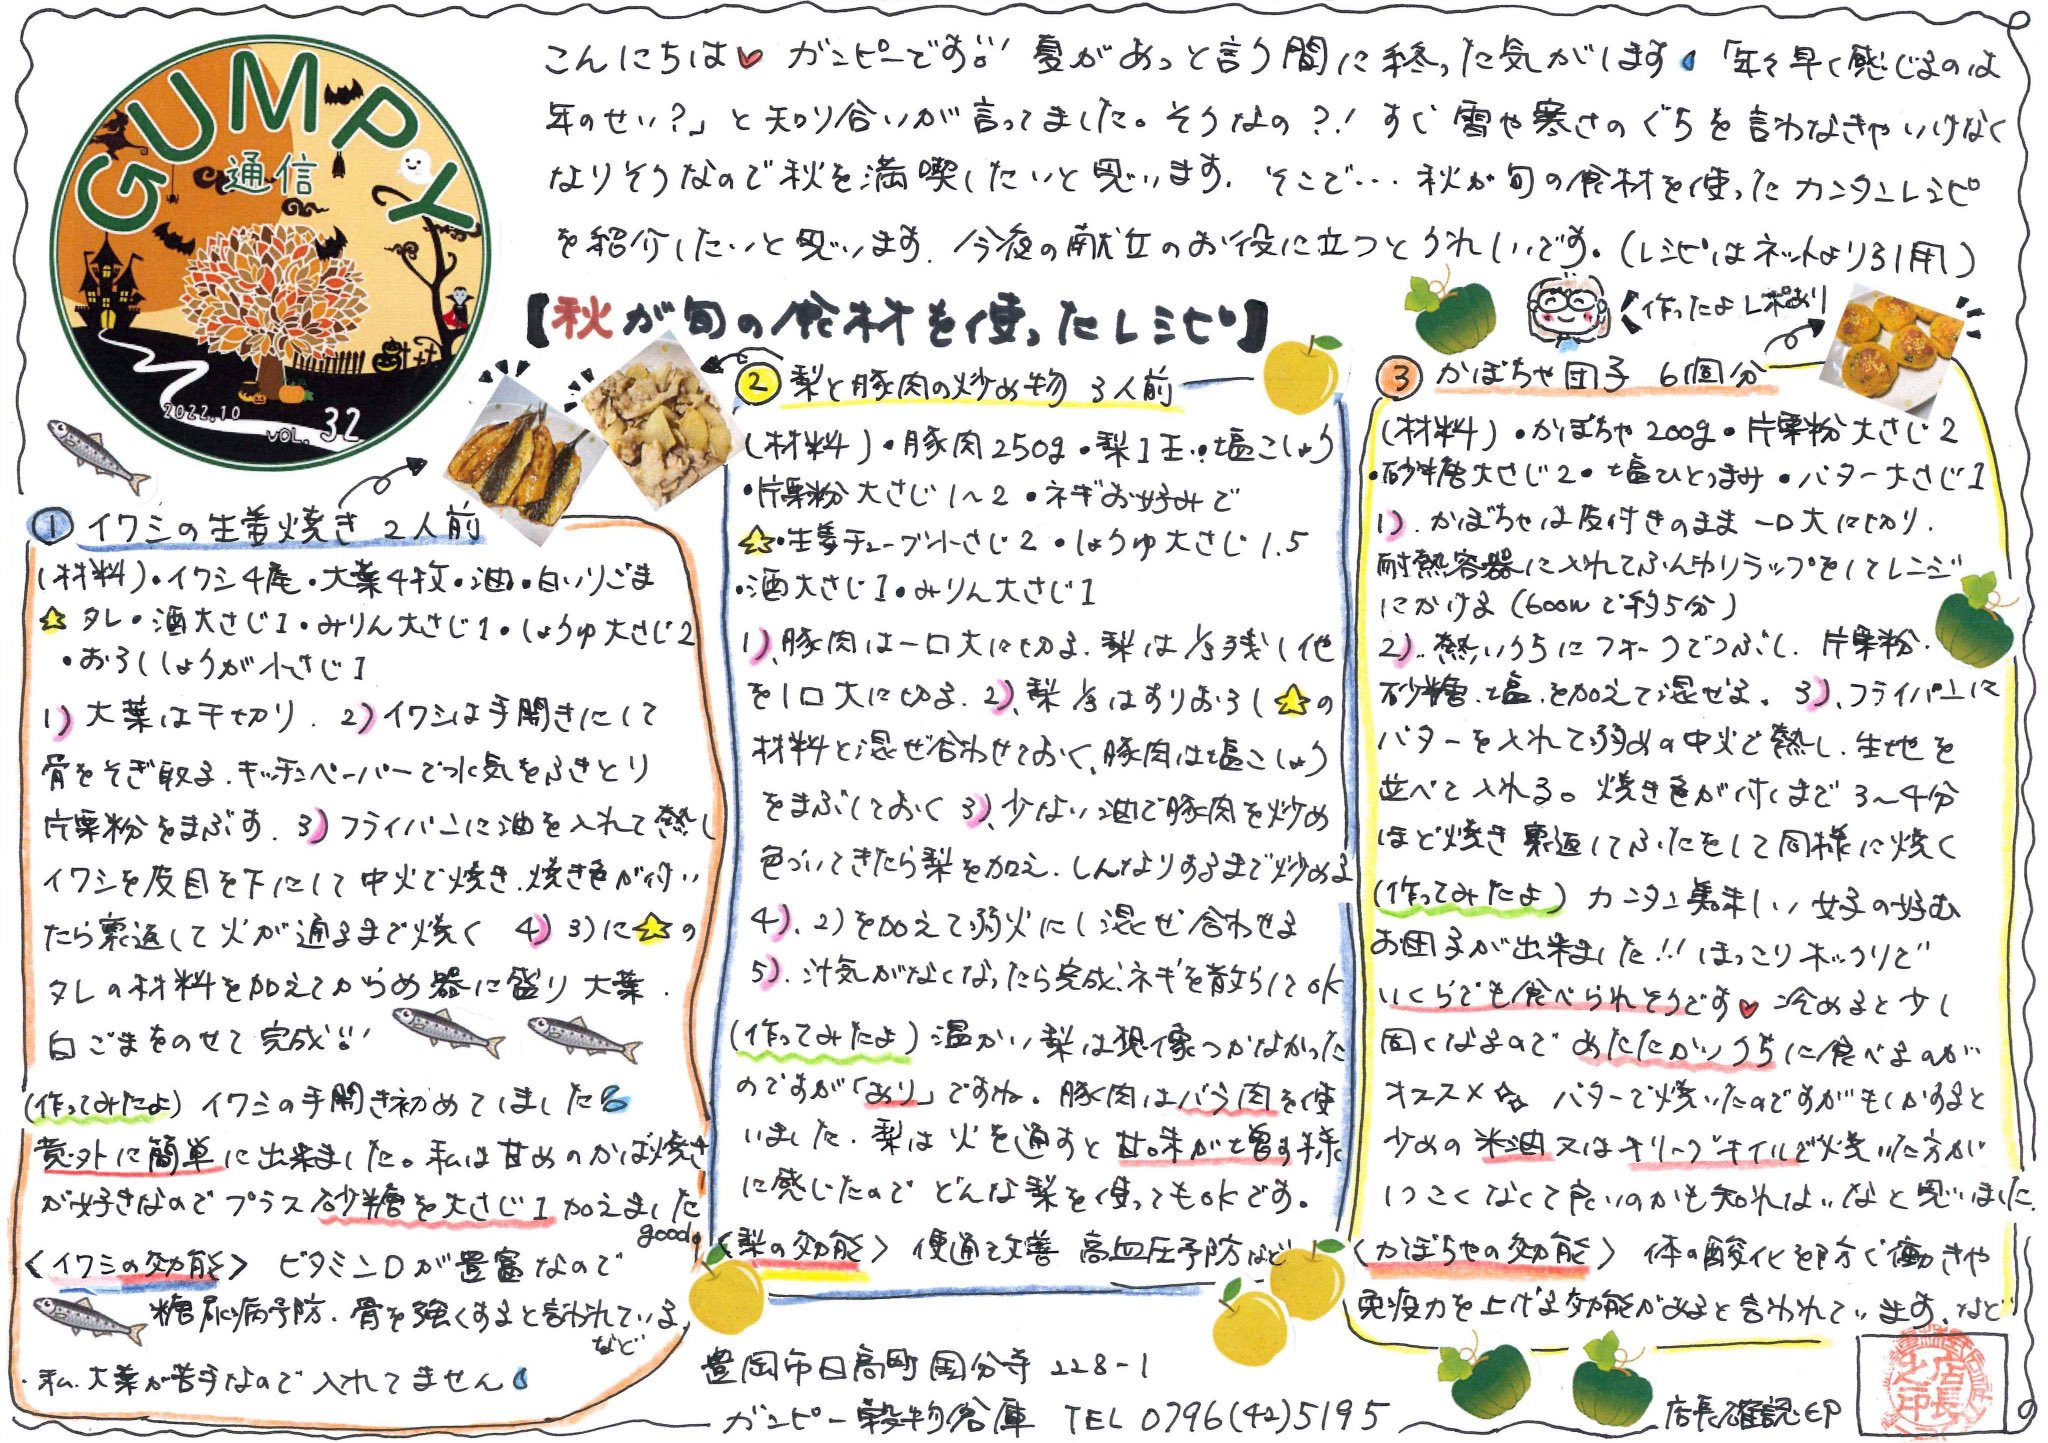 GUMPY
通信
2022.10
VOL. 32
こんにちは♥ ガンピーです!! 夏があっと言う間に終った気がします 「年々早く感じるのは
年のせい?」と知り合いが言ってました。そうなの?! すぐ雪や寒さのぐちを言わなきゃいけなく
なりそうなので秋を満喫したいと思います. そこで… 秋が旬の食材を使ったカンタンレシピ
を紹介したいと思います. 今夜の献立のお役に立つとうれしいです。(レシピはネットより引用)
【秋が旬の食材を使ったレシピ】
作ったよレポあり
① イワシの生姜焼き 2人前
(材料)・イワシ4尾・大葉4枚・油・白いりごま
☆タレ・酒大さじ1・みりん大さじ1・しょうゆ大さじ2
・おろししょうが小さじ1
1) 大葉は千切り. 2) イワシは手開きにして
骨をそぎ取る.キッチンペーパーで水気をふきとり
片栗粉をまぶす. 3) フライパンに油を入れて熱し
イワシを皮目を下にして中火で焼き.焼き色が付い
たら裏返して火が通るまで焼く 4) 3)に☆の
タレの材料を加えてからめ器に盛り大葉.
白ごまをのせて完成!!
(作ってみたよ) イワシの手開き初めてしました
意外に簡単に出来ました。私は甘めのかば焼き
が好きなのでプラス砂糖を大さじ1加えました
good。
<イワシの効能> ビタミンDが豊富なので
糖尿病予防.骨を強くすると言われている.
など
・私.大葉が苦手なので入れてません
② 梨と豚肉の炒め物 3人前
(材料)・豚肉250g・梨1玉・塩こしょう
・片栗粉大さじ1~2・ネギお好みで
☆・生姜チューブ小さじ2・しょうゆ大さじ1.5
・酒大さじ1・みりん大さじ1
1)、豚肉は一口大に切る.梨は1/3残し他
を1口大に切る. 2)、梨1/3はすりおろし☆の
材料と混ぜ合わせておく、豚肉は塩こしょう
をまぶしておく 3)、少ない油で豚肉を炒め
色づいてきたら梨を加え.しんなりするまで炒める
4)、2)を加えて弱火にし混ぜ合わせる
5)、汁気がなくなったら完成、ネギを散らしてOK
(作ってみたよ) 温かい梨は想像つかなかった
のですが「あり」ですね。豚肉はバラ肉を使
いました.梨は火を通すと甘味が増す様
に感じたのでどんな梨を使ってもOKです。
<梨の効能> 便通改善 高血圧予防など
③ かぼちゃ団子 6個分
(材料)・かぼちゃ200g・片栗粉大さじ2
・砂糖大さじ2・塩ひとつまみ・バター大さじ1
1).かぼちゃは皮付きのまま一口大に切り.
耐熱容器に入れてふんわりラップをしてレンジ
にかける(600wで約5分)
2).熱いうちにフォークでつぶし.片栗粉.
砂糖.塩.を加えて混ぜる. 3)、フライパンに
バターを入れて弱めの中火で熱し.生地を
並べて入れる。焼き色が付くまで3~4分
ほど焼き裏返してふたをして同様に焼く
(作ってみたよ) カンタン美味しい女子の好む
お団子が出来ました!! ほっこりホックリで
いくらでも食べられそうです♥ 冷めると少し
固くなるのであたたかいうちに食べるのが
オススメ☆ バターで焼いたのですがもしかすると
少めの米油又はオリーブオイルで焼いた方が
しつこくなくて良いのかも知れないなと思いました.
<かぼちゃの効能> 体の酸化を防ぐ働きや
免疫力を上げる効能があると言われています.など
豊岡市日高町国分寺228-1
ガンピー穀物倉庫 TEL 0796(42)5195
店長確認印
店長之印